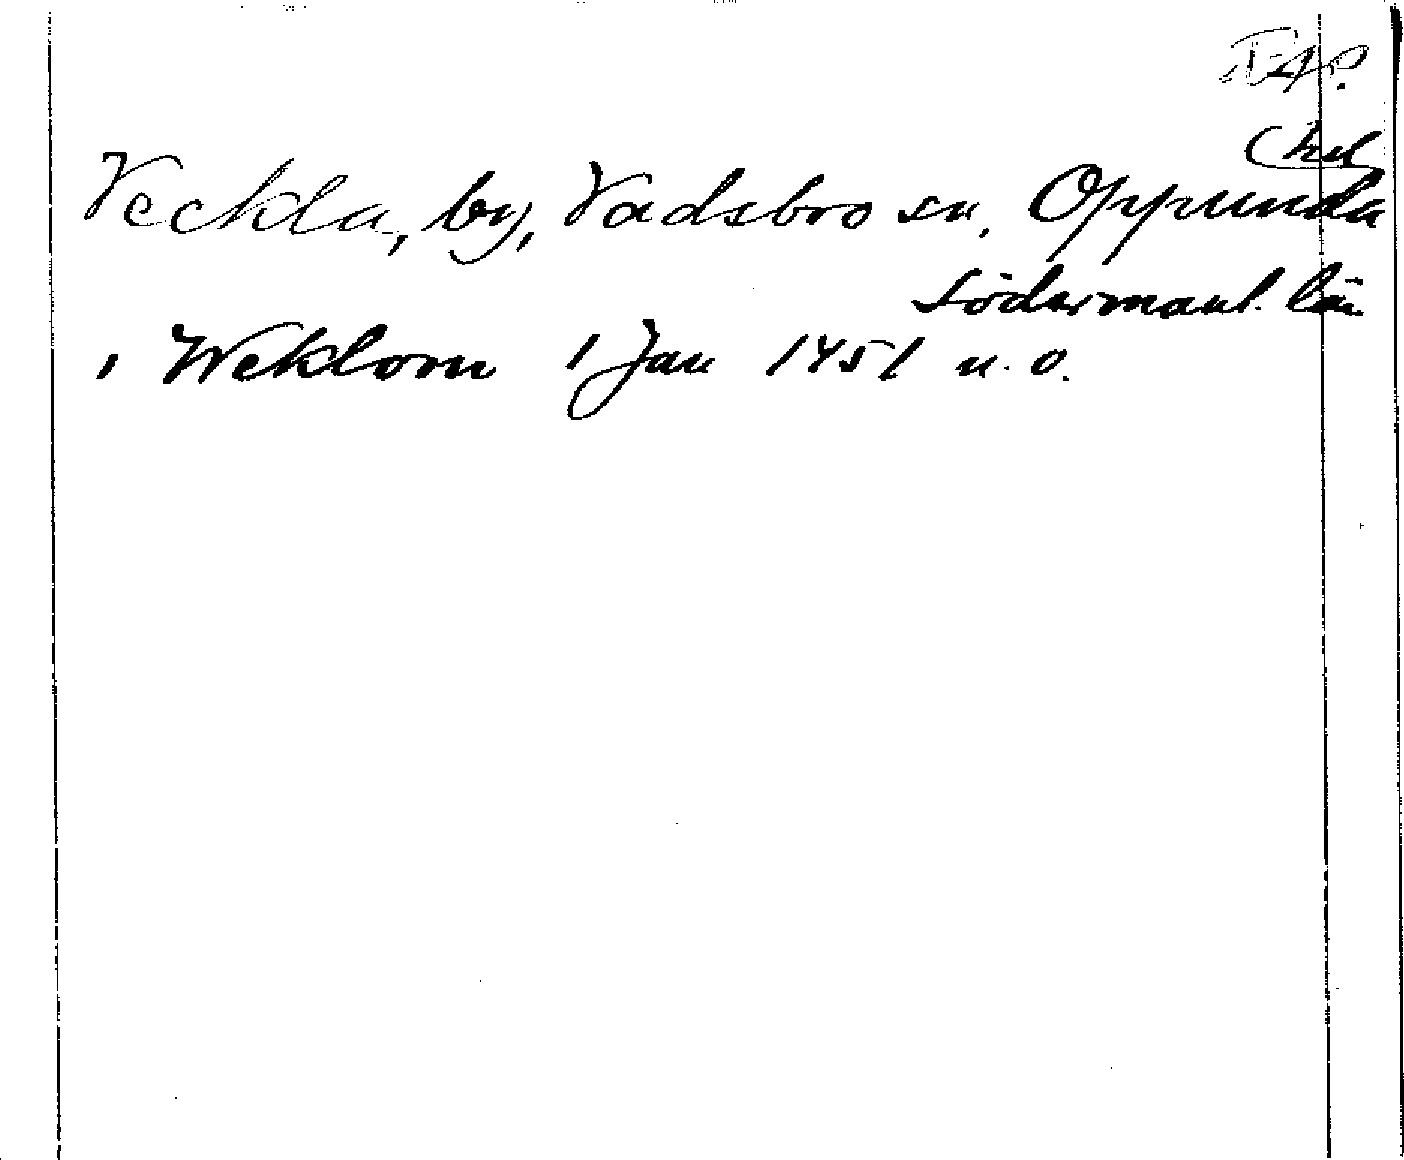 Veckla, by, Vadsbro sn, Oppunda
(hd
Södermanl. län
, Weklom 1 Jan 1451 u. o.